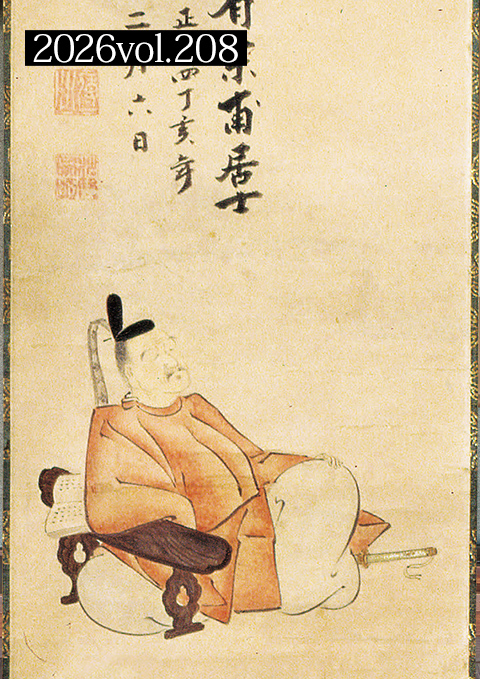 2026vol.208
有宗甫居士
正 四丁亥年
二月六日